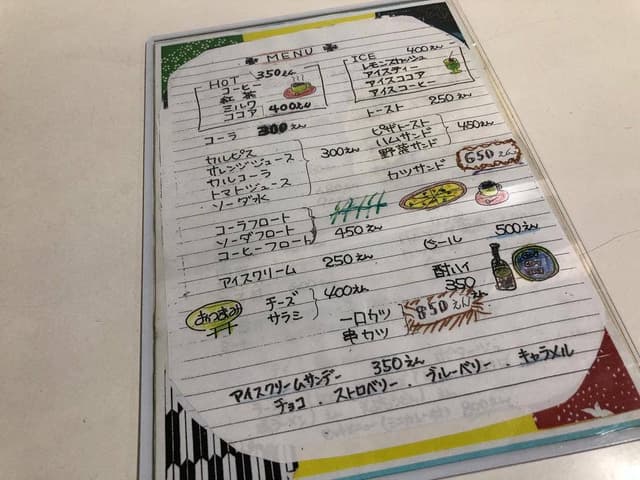 MENU
HOT 350えん
コーヒー
紅茶
ミルク
ココア 400えん
ICE 400えん
レモンスカッシュ
アイスティー
アイスココア
アイスコーヒー
コーラ 300えん
トースト 250えん
カルピス
オレンジジュース
カルコーラ
トマトジュース
ソーダ水
300えん
ピザトースト
ハムサンド
野菜サンド
450えん
カツサンド 650えん
コーラフロート
ソーダフロート
コーヒーフロート
450えん
アイスクリーム 250えん
ビール 500えん
酎ハイ
350えん
おつまみ
チーズ
サラミ
400えん
一口カツ
串カツ
850えん
アイスクリームサンデー 350えん
チョコ・ストロベリー・ブルーベリー・キャラメル